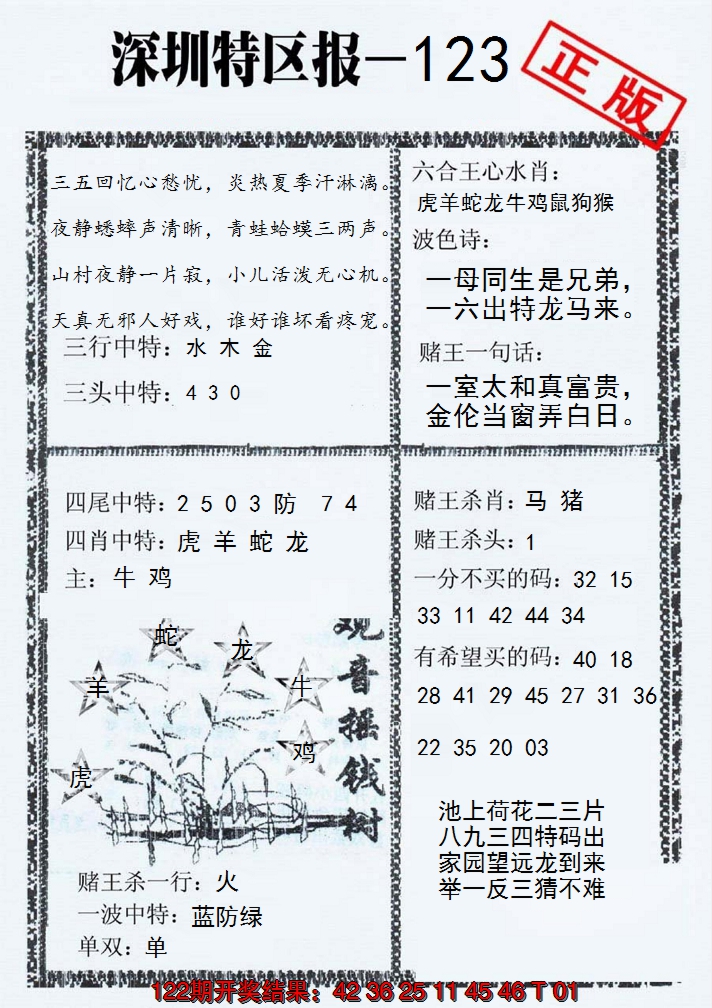 深圳特区报-123
正版
三五回忆心愁忧，炎热夏季汗淋漓。
夜静蟋蟀声清晰，青蛙蛤蟆三两声。
山村夜静一片寂，小儿活泼无心机。
天真无邪人好戏，谁好谁坏看疼宠。
三行中特：水 木 金
三头中特：4 3 0
六合王心水肖：
虎羊蛇龙牛鸡鼠狗猴
波色诗：
一母同生是兄弟，
一六出特龙马来。
赌王一句话：
一室太和真富贵，
金伦当窗弄白日。
四尾中特：2 5 0 3 防 7 4
四肖中特：虎 羊 蛇 龙
主：牛 鸡
蛇
龙
羊
牛
鸡
虎
观音摇钱树
赌王杀一行：火
一波中特：蓝防绿
单双：单
赌王杀肖：马 猪
赌王杀头：1
一分不买的码：32 15
33 11 42 44 34
有希望买的码：40 18
28 41 29 45 27 31 36
22 35 20 03
池上荷花二三片
八九三四特码出
家园望远龙到来
举一反三猜不难
122期开奖结果：42 36 25 11 45 46 T 01